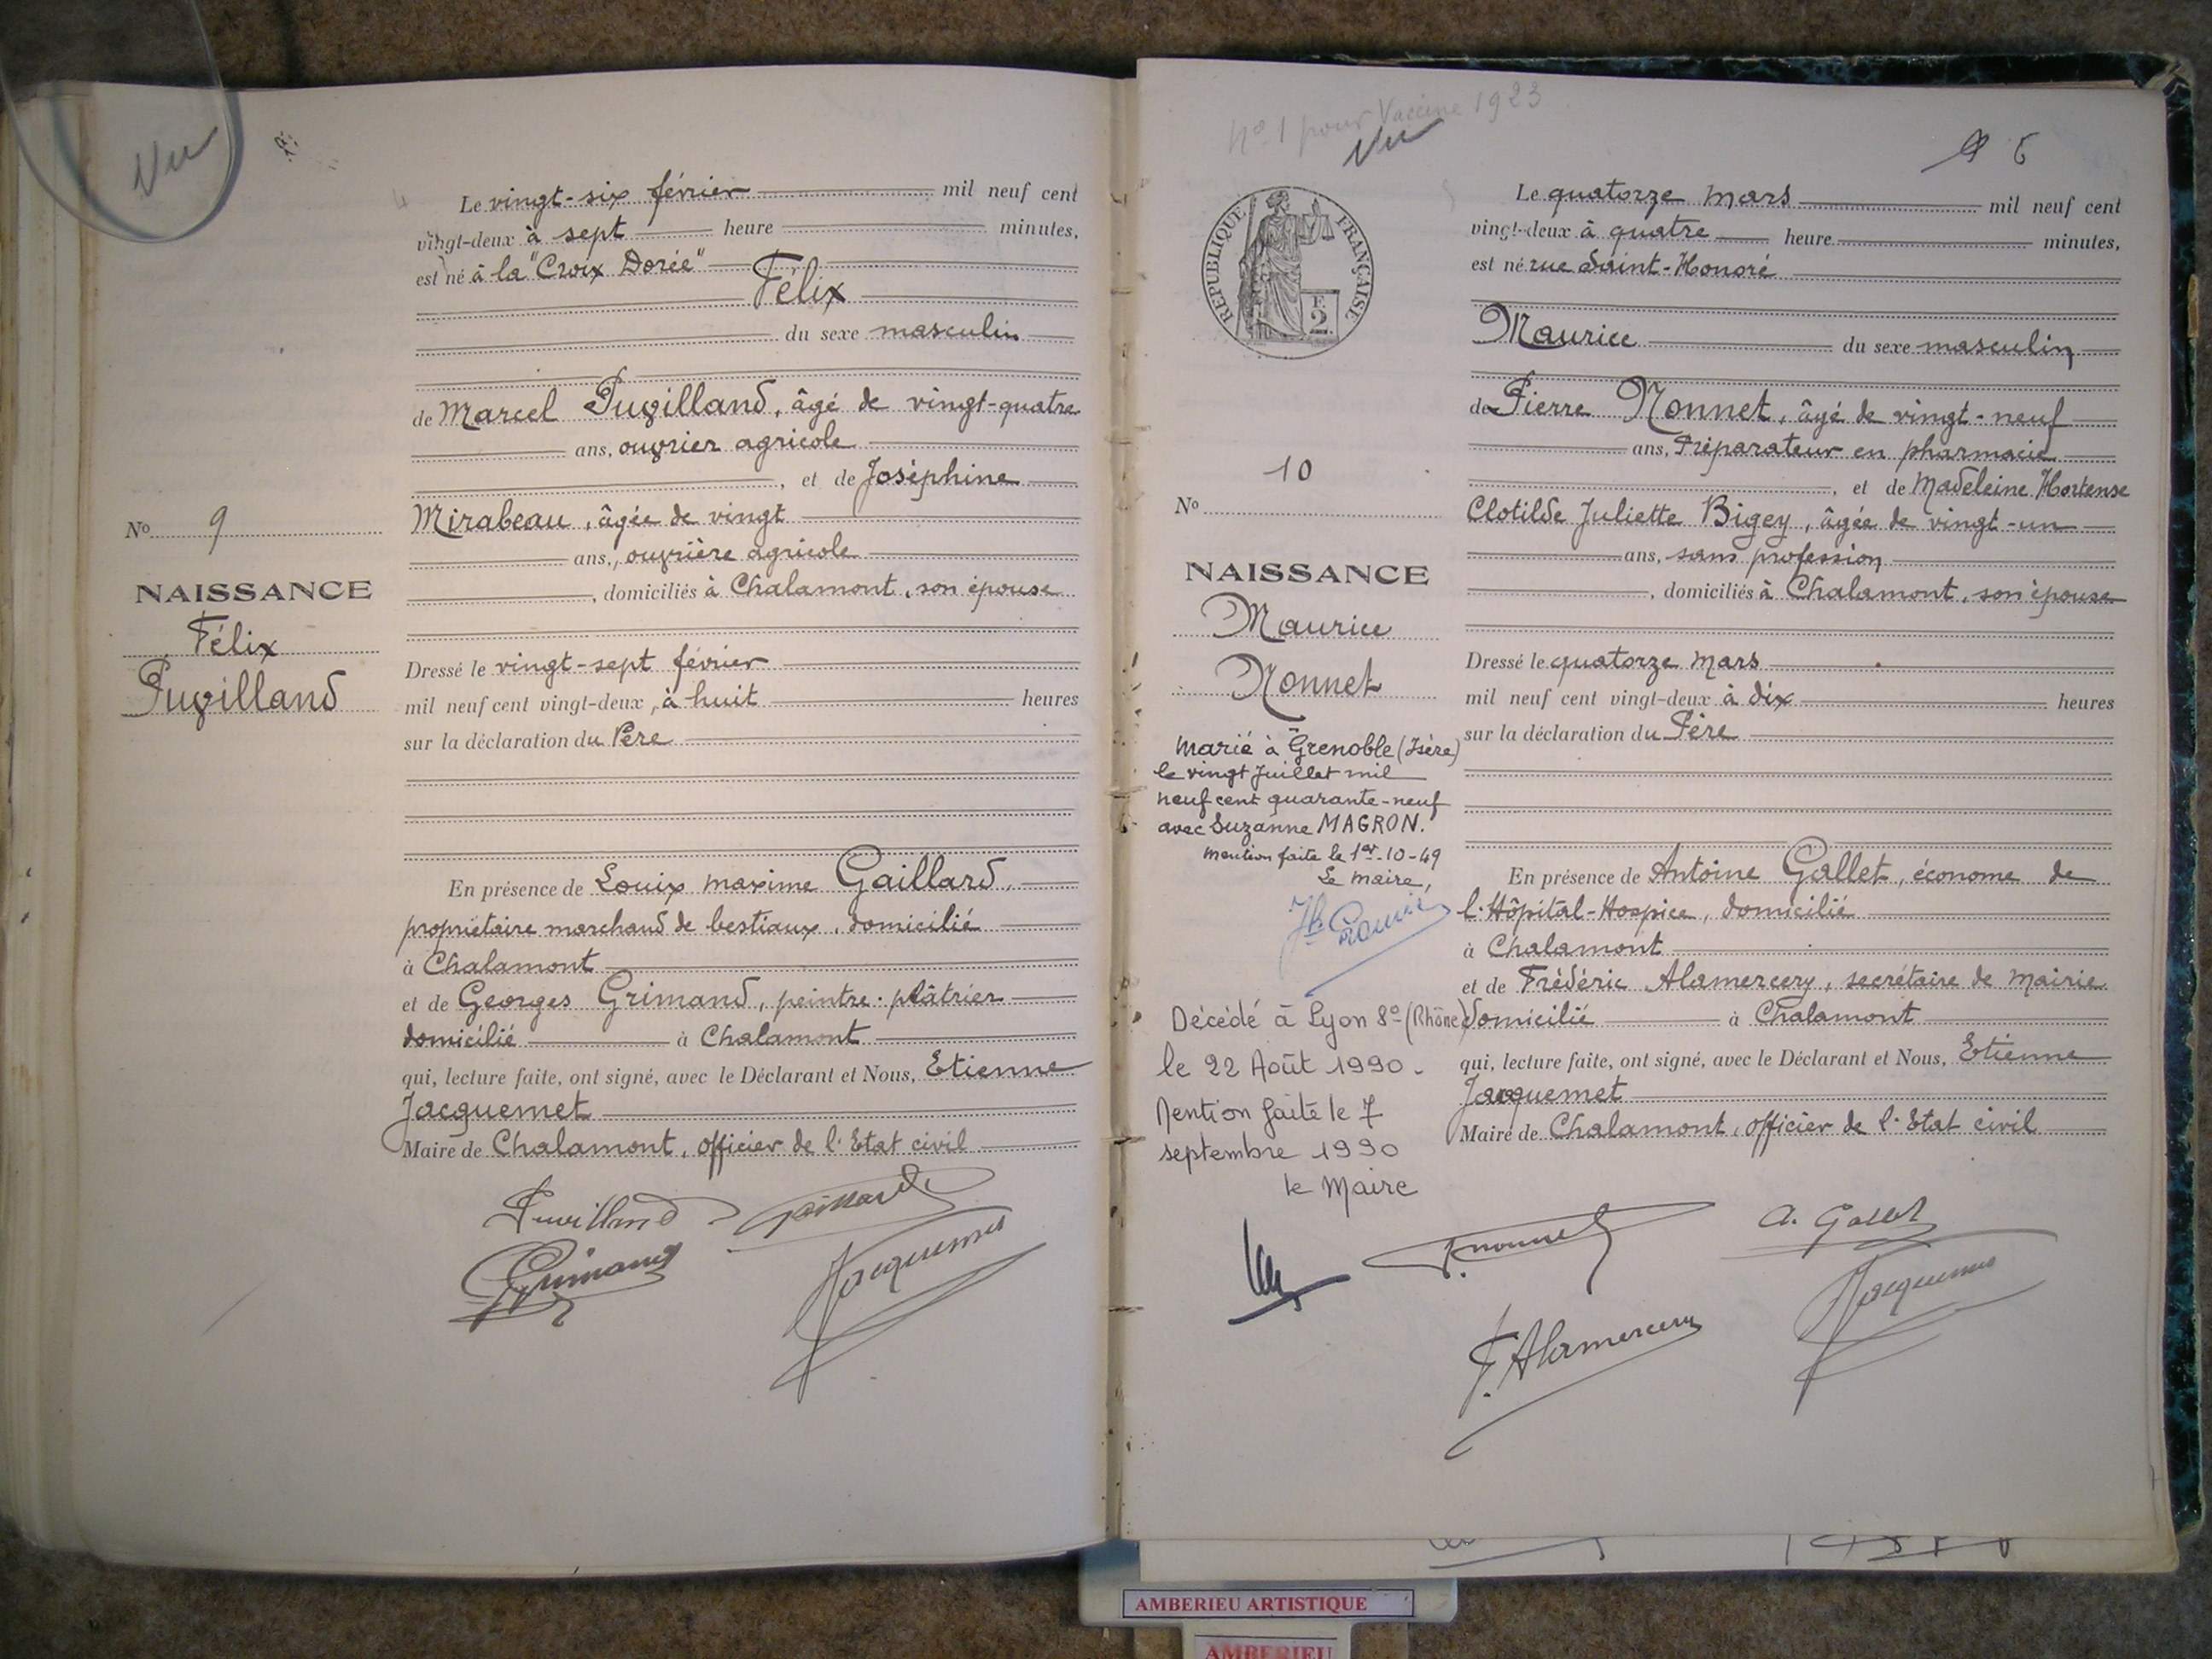 Vu
Le vingt-six février mil neuf cent
vingt-deux à sept heure minutes,
est né à la "Croix Dorée"
Félix
du sexe masculin
de Marcel Puvilland, âgé de vingt-quatre
ans, ouvrier agricole
, et de Joséphine
Mirabeau, âgée de vingt
ans, ouvrière agricole
, domiciliés à Chalamont, son épouse
No 9
NAISSANCE
Félix
Puvilland
Dressé le vingt-sept février
mil neuf cent vingt-deux, à huit heures
sur la déclaration du Père
En présence de Louis Maxime Gaillard,
propriétaire marchand de bestiaux, domicilié
à Chalamont
et de Georges Grimand, peintre-plâtrier
domicilié à Chalamont
qui, lecture faite, ont signé, avec le Déclarant et Nous, Etienne
Jacquemet
Maire de Chalamont, officier de l'Etat civil
Puvilland Gaillard
Grimand Jacquemet
No 1 pour Vaccine 1923
Vu
6
RÉPUBLIQUE FRANÇAISE
F.
2
Le quatorze Mars mil neuf cent
vingt-deux à quatre heure minutes,
est né rue Saint-Honoré
Maurice du sexe masculin
de Pierre Monnet, âgé de vingt-neuf
ans, Préparateur en pharmacie
, et de Madeleine Hortense
Clotilde Juliette Bigey, âgée de vingt-un
ans, sans profession
, domiciliés à Chalamont, son épouse
No 10
NAISSANCE
Maurice
Monnet
Marié à Grenoble (Isère)
le vingt Juillet mil
neuf cent quarante-neuf
avec Suzanne MAGRON.
Mention faite le 1er-10-49
Le Maire,
Décédé à Lyon 8e (Rhône)
le 22 Août 1990.
Mention faite le 7
septembre 1990
le Maire
Dressé le quatorze Mars
mil neuf cent vingt-deux à dix heures
sur la déclaration du Père
En présence de Antoine Gallet, économe de
l'Hôpital-Hospice, domicilié
à Chalamont
et de Frédéric Alamercery, secrétaire de Mairie
domicilié à Chalamont
qui, lecture faite, ont signé, avec le Déclarant et Nous, Etienne
Jacquemet
Maire de Chalamont, officier de l'Etat civil
P. Monnet A. Gallet
F. Alamercery Jacquemet
AMBERIEU ARTISTIQUE
AMBERIEU